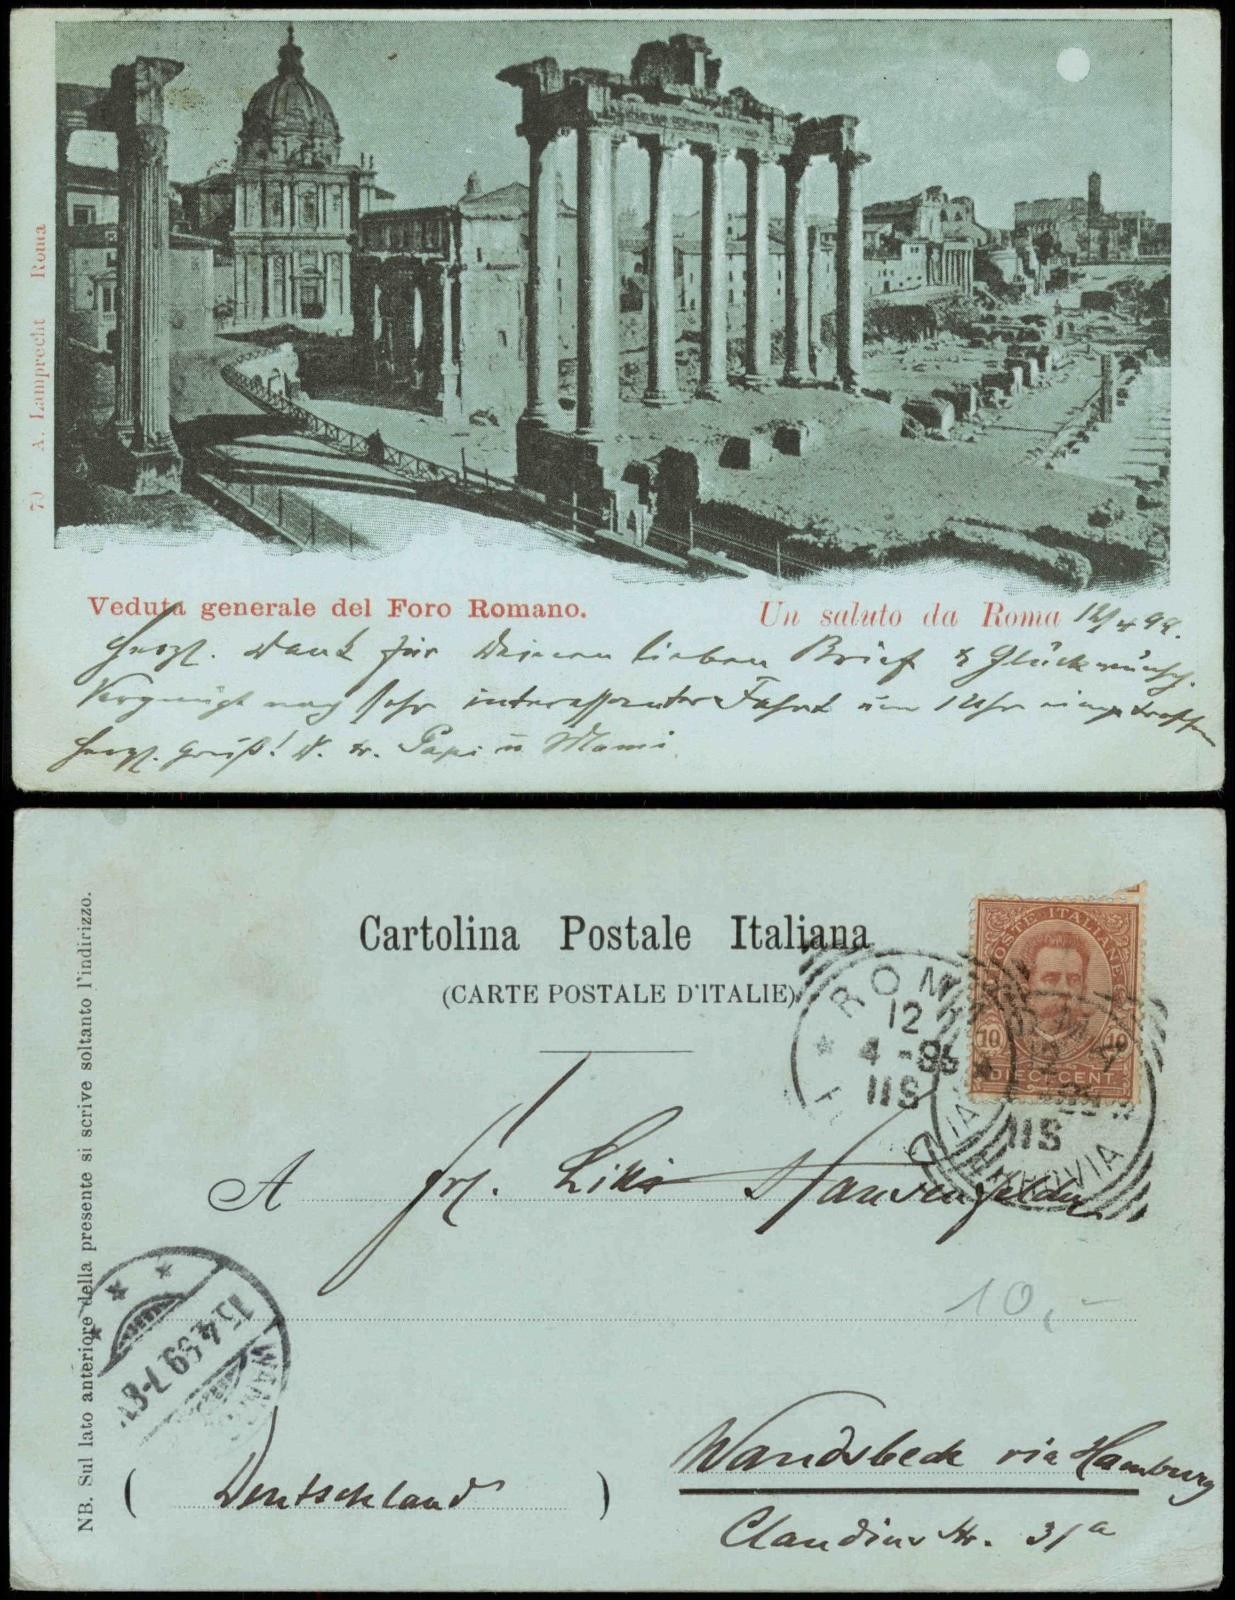 70 A. Lamprecht Roma
Veduta generale del Foro Romano.
Un saluto da Roma 12/4 99.
Herzl. Dank für Deinen lieben Brief & Glückwünsch.
Vergnügt nach sehr interessanter Fahrt um 1 Uhr eingetroffen
herzl. Gruß! D. tr. Papi u Mami
Cartolina Postale Italiana
(CARTE POSTALE D'ITALIE)
POSTE ITALIANE
10 10
DIECI CENT.
ROMA
12
4-98
11S
12
11S
FERROVIA
A Frl. Lilli
15.4.99 7-8N
WANDSBEK
Wandsbeck via Hamburg
(Deutschland)
Claudius str. 31a
10,-
NB. Sul lato anteriore della presente si scrive soltanto l'indirizzo.